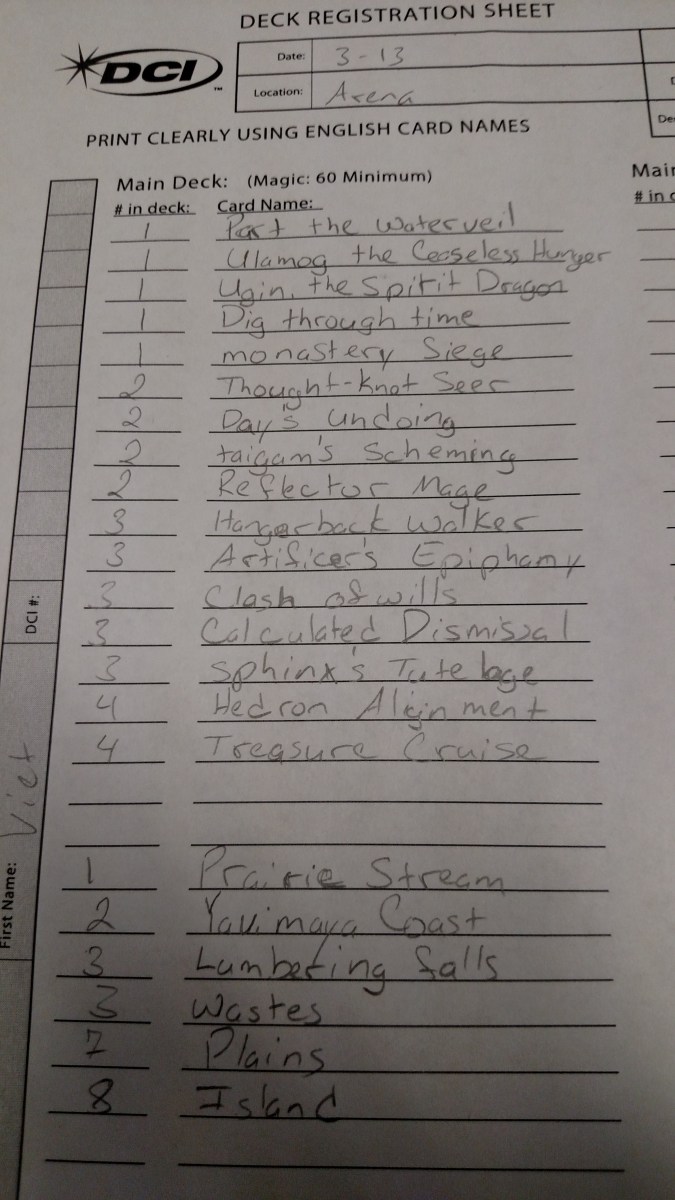 DECK REGISTRATION SHEET
DCI™
Date: 3-13
Location: Arena
PRINT CLEARLY USING ENGLISH CARD NAMES
Main Deck: (Magic: 60 Minimum)
# in deck: Card Name:
1 Part the Waterveil
1 Ulamog the Ceaseless Hunger
1 Ugin, the Spirit Dragon
1 Dig through time
1 monastery Siege
2 Thought-Knot Seer
2 Day's undoing
2 taigam's Scheming
2 Reflector Mage
3 Hangerback Walker
3 Artificer's Epiphamy
3 Clash of wills
3 Calculated Dismissal
3 Sphinx's Tutelage
4 Hedron Alignment
4 Treasure Cruise
1 Prairie Stream
2 Yavimaya Coast
3 Lumbering falls
3 Wastes
7 Plains
8 Island
DCI #:
First Name: Viet
Main
# in d
De